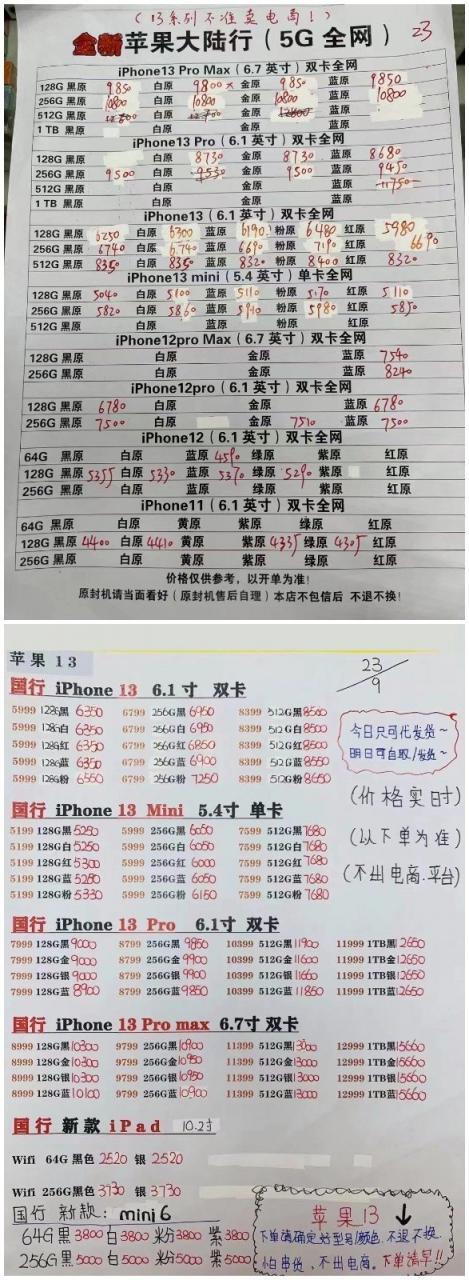 (13系列不准卖电商!)
全新苹果大陆行（5G 全网） 23
iPhone13 Pro Max（6.7 英寸）双卡全网
128G 黑原 9850 白原 9800 金原 9850 蓝原 9850
256G 黑原 10800 白原 10800 金原 10800 蓝原 10800
512G 黑原 白原 金原 蓝原
1 TB 黑原 白原 金原 蓝原
iPhone13 Pro（6.1 英寸）双卡全网
128G 黑原 白原 8730 金原 8730 蓝原 8680
256G 黑原 9500 白原 9530 金原 9500 蓝原 9450
512G 黑原 白原 金原 蓝原 11750
1 TB 黑原 白原 金原 蓝原
iPhone13（6.1 英寸）双卡全网
128G 黑原 6250 白原 6300 蓝原 6190 粉原 6480 红原 5980
256G 黑原 6740 白原 6740 蓝原 6690 粉原 7190 红原 6690
512G 黑原 8350 白原 8350 蓝原 8320 粉原 8400 红原 8320
iPhone13 mini（5.4 英寸）单卡全网
128G 黑原 5040 白原 5100 蓝原 5110 粉原 5170 红原 5110
256G 黑原 5820 白原 5860 蓝原 5910 粉原 5980 红原 5850
512G 黑原 白原 蓝原 粉原 红原
iPhone12pro Max（6.7 英寸）双卡全网
128G 黑原 白原 金原 蓝原 7540
256G 黑原 白原 金原 蓝原 8240
iPhone12pro（6.1 英寸）双卡全网
128G 黑原 6780 白原 金原 蓝原 6780
256G 黑原 7500 白原 金原 7510 蓝原 7500
iPhone12（6.1 英寸）双卡全网
64G 黑原 白原 蓝原 4590 绿原 紫原 红原
128G 黑原 5355 白原 5330 蓝原 5370 绿原 5290 紫原 红原
256G 黑原 白原 蓝原 绿原 紫原 红原
iPhone11（6.1 英寸）双卡全网
64G 黑原 白原 黄原 紫原 绿原 红原
128G 黑原 4400 白原 4410 黄原 紫原 4335 绿原 4305 红原
256G 黑原 白原 黄原 紫原 绿原 红原
价格仅供参考，以开单为准！
原封机请当面看好（原封机售后自理）本店不包信后 不退不换！
苹果 13
23/9
国行 iPhone 13 6.1寸 双卡
5999 128G黑 6350 6799 256G黑 6950 8399 512G黑 8500
5999 128G白 6350 6799 256G白 6950 8399 512G白 8500
5999 128G红 6350 6799 256G红 6850 8399 512G红 8500
5999 128G蓝 6350 6799 256G蓝 6900 8399 512G蓝 8550
5999 128G粉 6550 6799 256G粉 7250 8399 512G粉 8650
今日只可代发货~
明日可自取/发货~
(价格实时)
(以下单为准)
(不出电商.平台)
国行 iPhone 13 Mini 5.4寸 单卡
5199 128G黑 5250 5999 256G黑 6050 7599 512G黑 7680
5199 128G白 5250 5999 256G白 6050 7599 512G白 7680
5199 128G红 5300 5999 256G红 6000 7599 512G红 7680
5199 128G蓝 5250 5999 256G蓝 6050 7599 512G蓝 7680
5199 128G粉 5330 5999 256G粉 6150 7599 512G粉 7680
国行 iPhone 13 Pro 6.1寸 双卡
7999 128G黑 9000 8799 256G黑 9850 10399 512G黑 11900 11999 1TB黑 12650
7999 128G金 9000 8799 256G金 9900 10399 512G金 11600 11999 1TB金 12650
7999 128G银 9000 8799 256G银 9900 10399 512G银 11660 11999 1TB银 12650
7999 128G蓝 8900 8799 256G蓝 9850 10399 512G蓝 11850 11999 1TB蓝 12650
国行 iPhone 13 Pro max 6.7寸 双卡
8999 128G黑 10300 9799 256G黑 10900 11399 512G黑 13000 12999 1TB黑 15660
8999 128G金 10300 9799 256G金 10950 11399 512G金 13000 12999 1TB金 15660
8999 128G银 10300 9799 256G银 10950 11399 512G银 13000 12999 1TB银 15660
8999 128G蓝 10100 9799 256G蓝 10900 11399 512G蓝 13000 12999 1TB蓝 15660
国行 新款 iPad 10.2寸
Wifi 64G 黑色 2520 银 2520
Wifi 256G 黑色 3730 银 3730
国行 新款: mini6
64G 黑 3800 白 3800 粉 3800 紫 3800
256G 黑 5000 白 5000 粉 5000 紫 5000
苹果 13 ↓
下单请确定好型号/颜色.不退不换.
怕串货，不出电商。下单请早!!